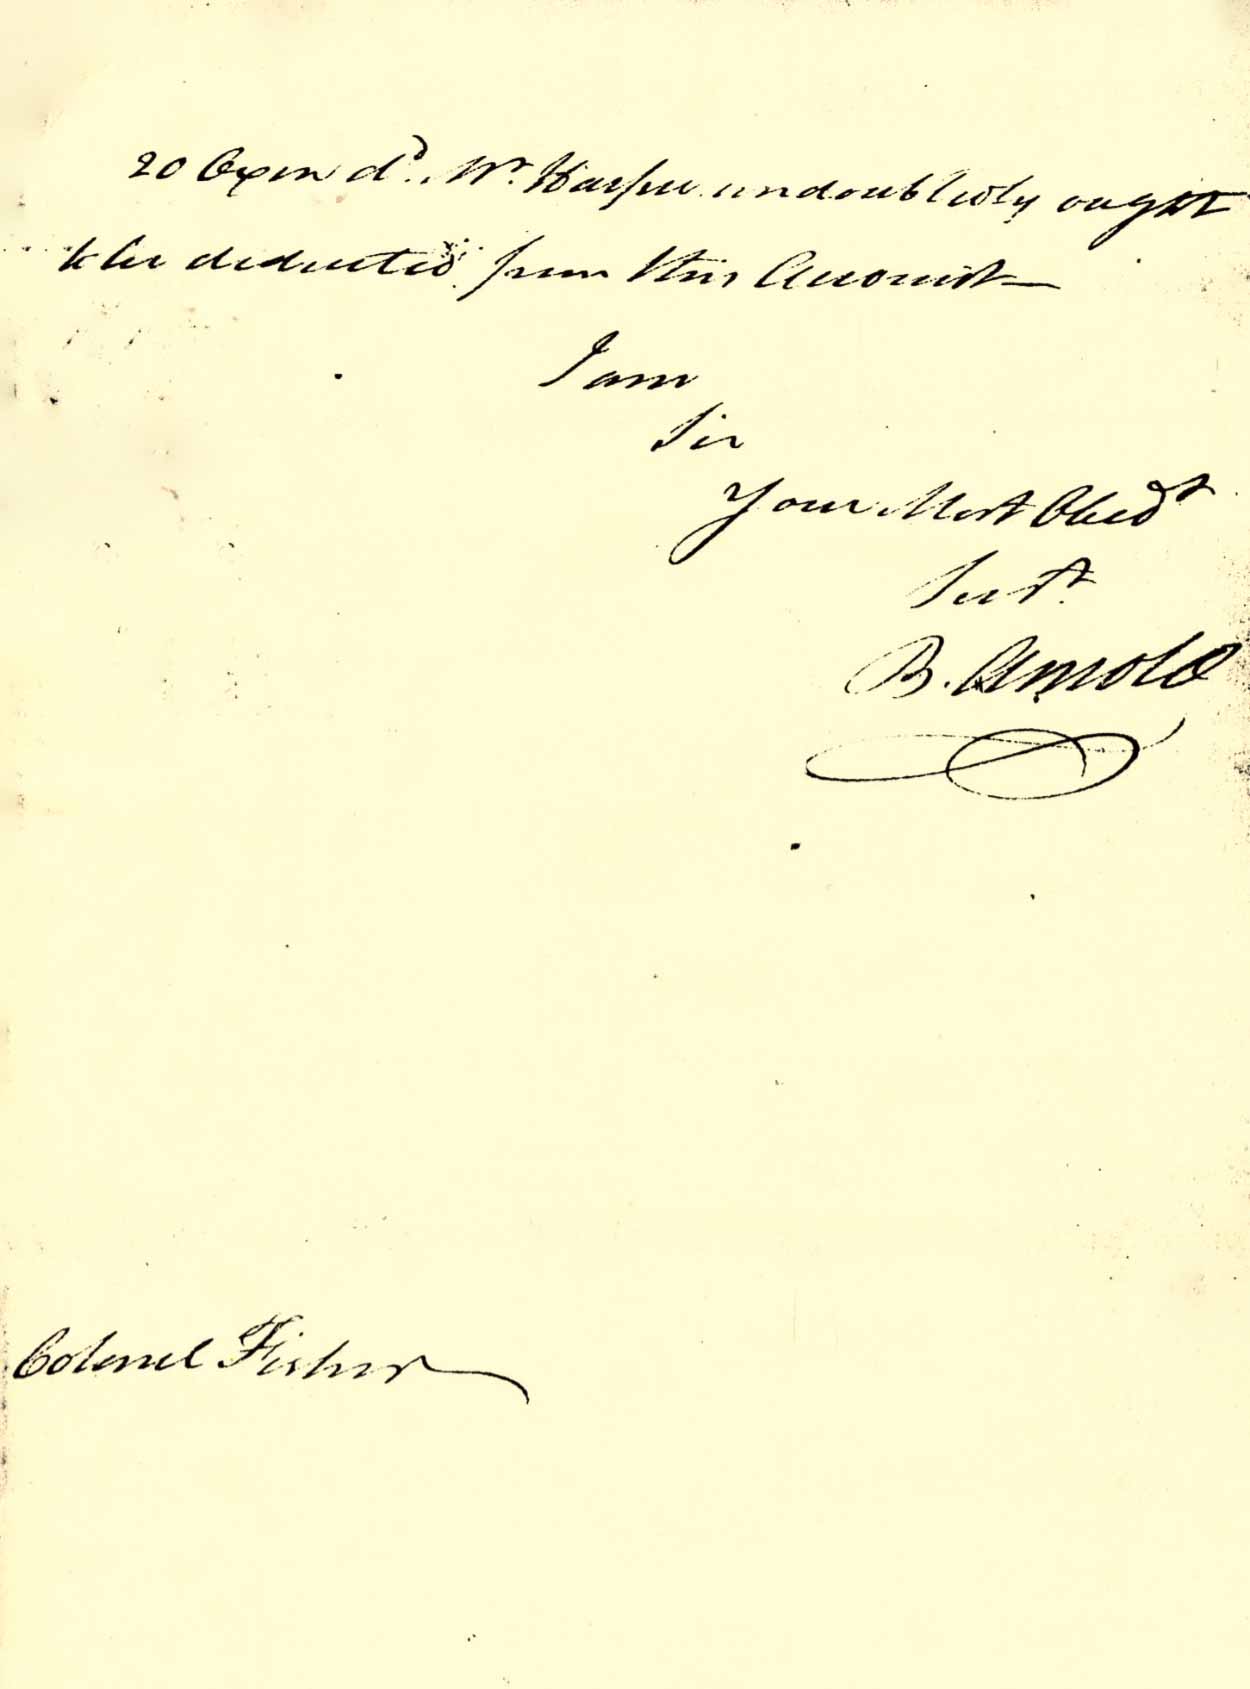 20 Oxen d.d Mr. Harper undoubtedly ought
to be deducted from this Account—
I am
Sir
Your Most Obedt
Servt.
B. Arnold
Colonel Fisher